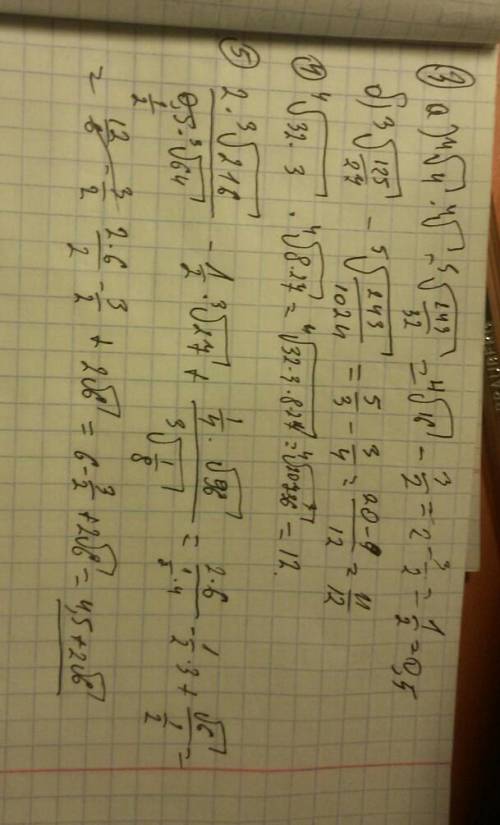 ③ а) ⁴√4 · ⁴√ - ⁵√(243/32) = ⁴√16 - 3/2 = 2 - 3/2 = 1/2 = 0,5
б) ³√(125/27) - ⁵√(243/1024) = 5/3 - 3/4 = (20-9)/12 = 11/12
④ ⁴√(32·3) · ⁴√(8·27) = ⁴√(32·3·8·27) = = 12.
⑤ (2·³√216)/(0,5·³√64) - 1/2·³√27 + (1/4·√96)/(³√(1/8)) = (2·6)/(1/2·4) - 1/2·3 + √6/(1/2) =
= (2·6)/2 - 3/2 + 2√6 = 6 - 3/2 + 2√6 = 4,5 + 2√6